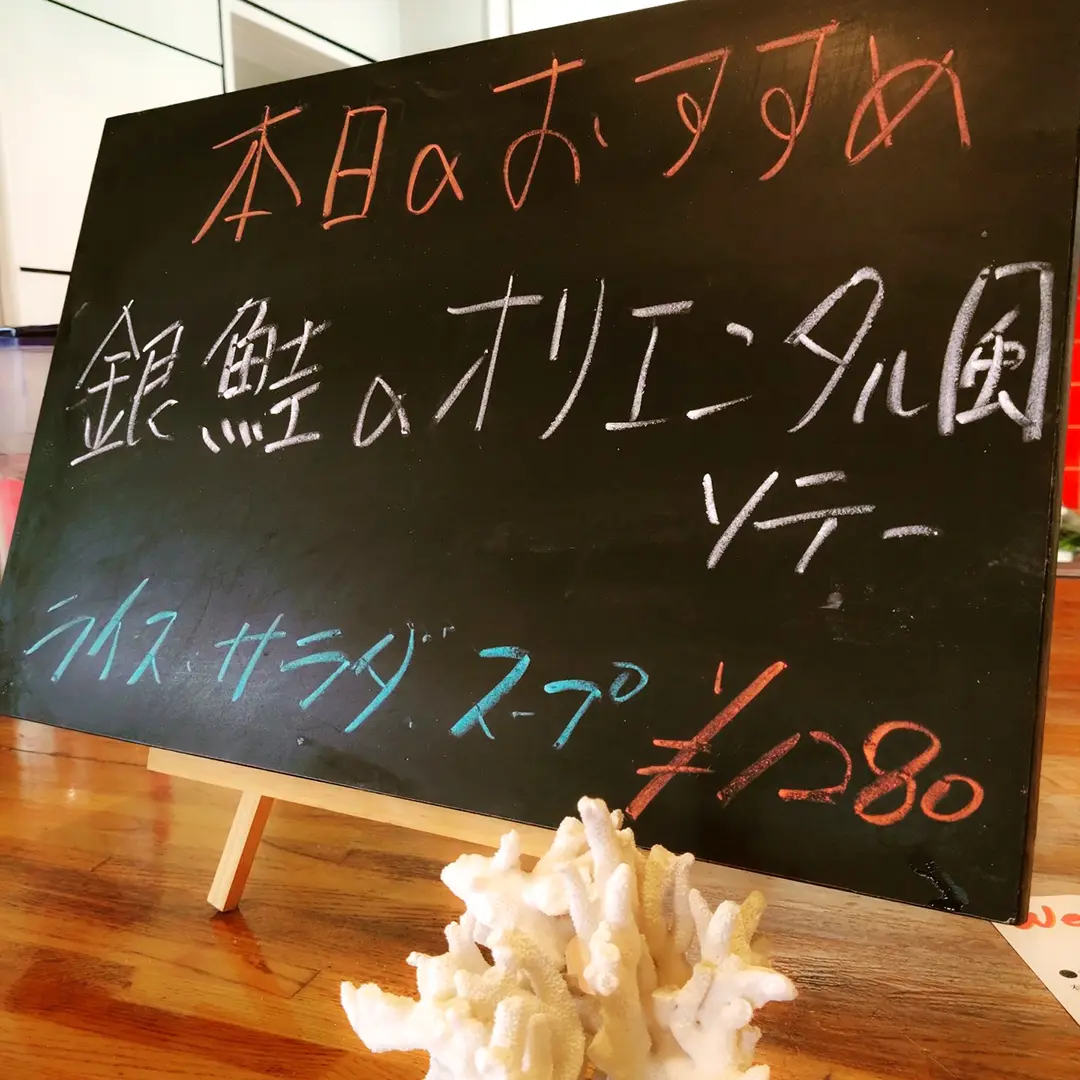 本日のおすすめ
銀鮭のオリエンタル風
ソテー
ライス・サラダ・スープ
¥1280
We